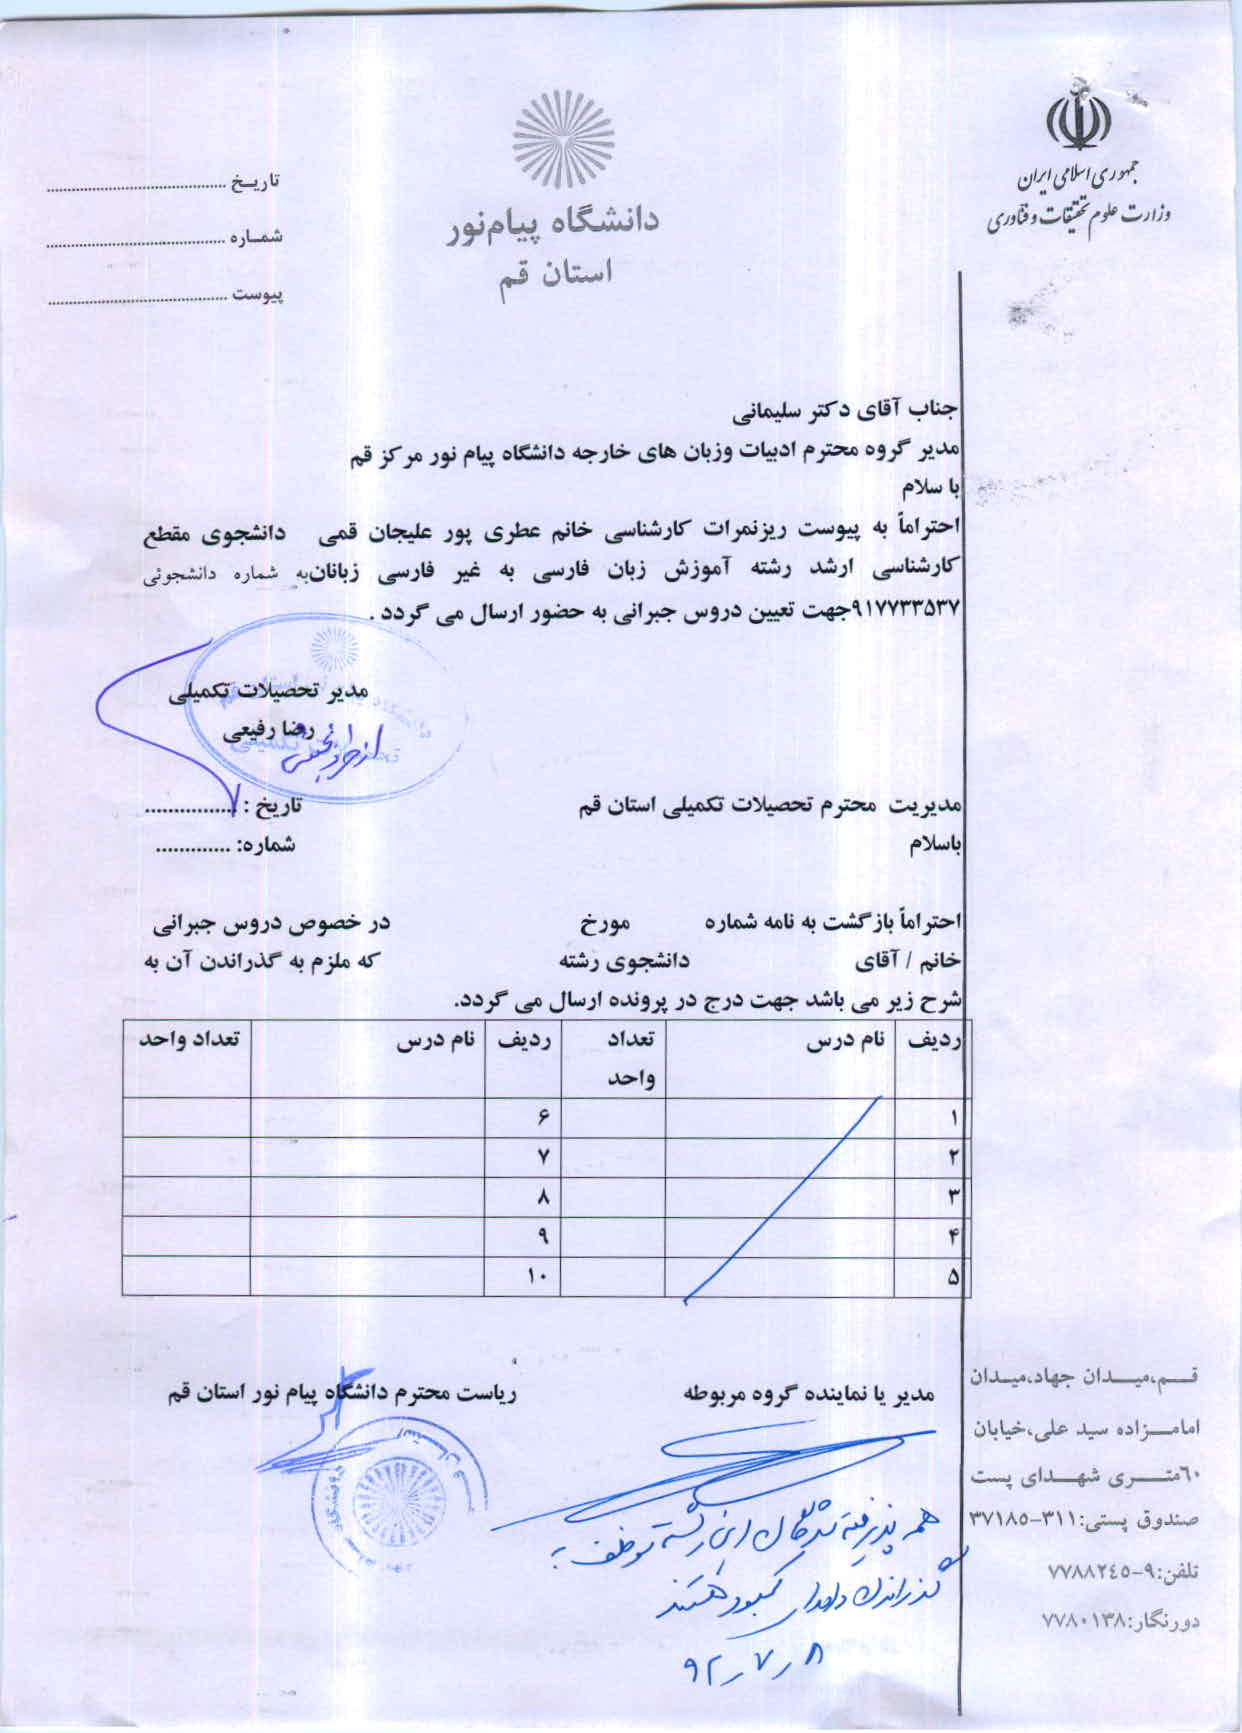 جمهوری اسلامی ایران
وزارت علوم تحقیقات و فناوری
دانشگاه پیام‌نور
استان قم
تاریـخ ........................................
شمـاره ........................................
پیوست ........................................
جناب آقای دکتر سلیمانی
مدیر گروه محترم ادبیات وزبان های خارجه دانشگاه پیام نور مرکز قم
با سلام
احتراماً به پیوست ریزنمرات کارشناسی خانم عطری پور علیجان قمی دانشجوی مقطع
کارشناسی ارشد رشته آموزش زبان فارسی به غیر فارسی زبانانبه شماره دانشجوئی
۹۱۷۷۳۳۵۳۷جهت تعیین دروس جبرانی به حضور ارسال می گردد .
مدیر تحصیلات تکمیلی
رضا رفیعی
مدیریت محترم تحصیلات تکمیلی استان قم تاریخ : ................
باسلام شماره: .............
احتراماً بازگشت به نامه شماره مورخ در خصوص دروس جبرانی
خانم / آقای دانشجوی رشته که ملزم به گذراندن آن به
شرح زیر می باشد جهت درج در پرونده ارسال می گردد.
ردیف نام درس تعداد واحد ردیف نام درس تعداد واحد
۱ ۶
۲ ۷
۳ ۸
۴ ۹
۵ ۱۰
مدیر یا نماینده گروه مربوطه ریاست محترم دانشگاه پیام نور استان قم
همه پذیرفته شدگان این رشته موظف به
گذراندن واحدهای کمبود هستند
۹۲/۷/۸
قـــم،میـــدان جهاد،میـدان
امامـــزاده سید علی،خیابان
٦٠متـــری شهـــدای پست
صندوق پستی:۳۱۱-۳۷۱۸۵
تلفن:۹-۷۷۸۸۲٤٥
دورنگار:۷۷۸۰۱۳۸